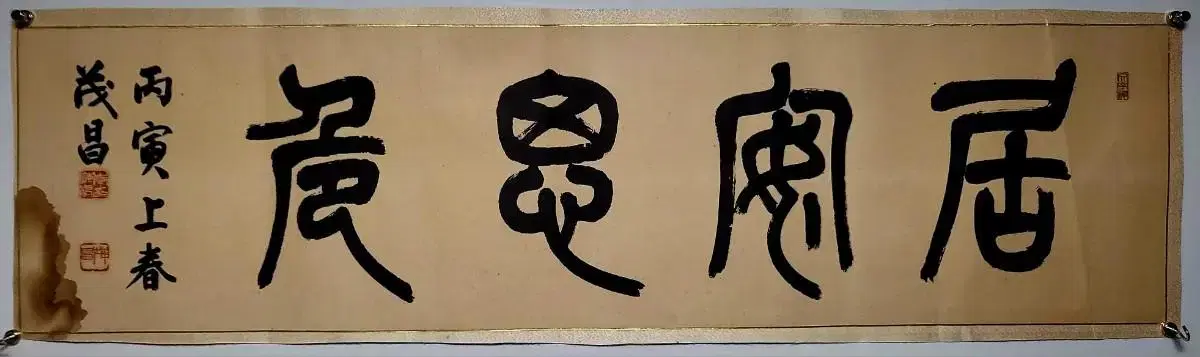 居安思危
丙寅上春
茂昌